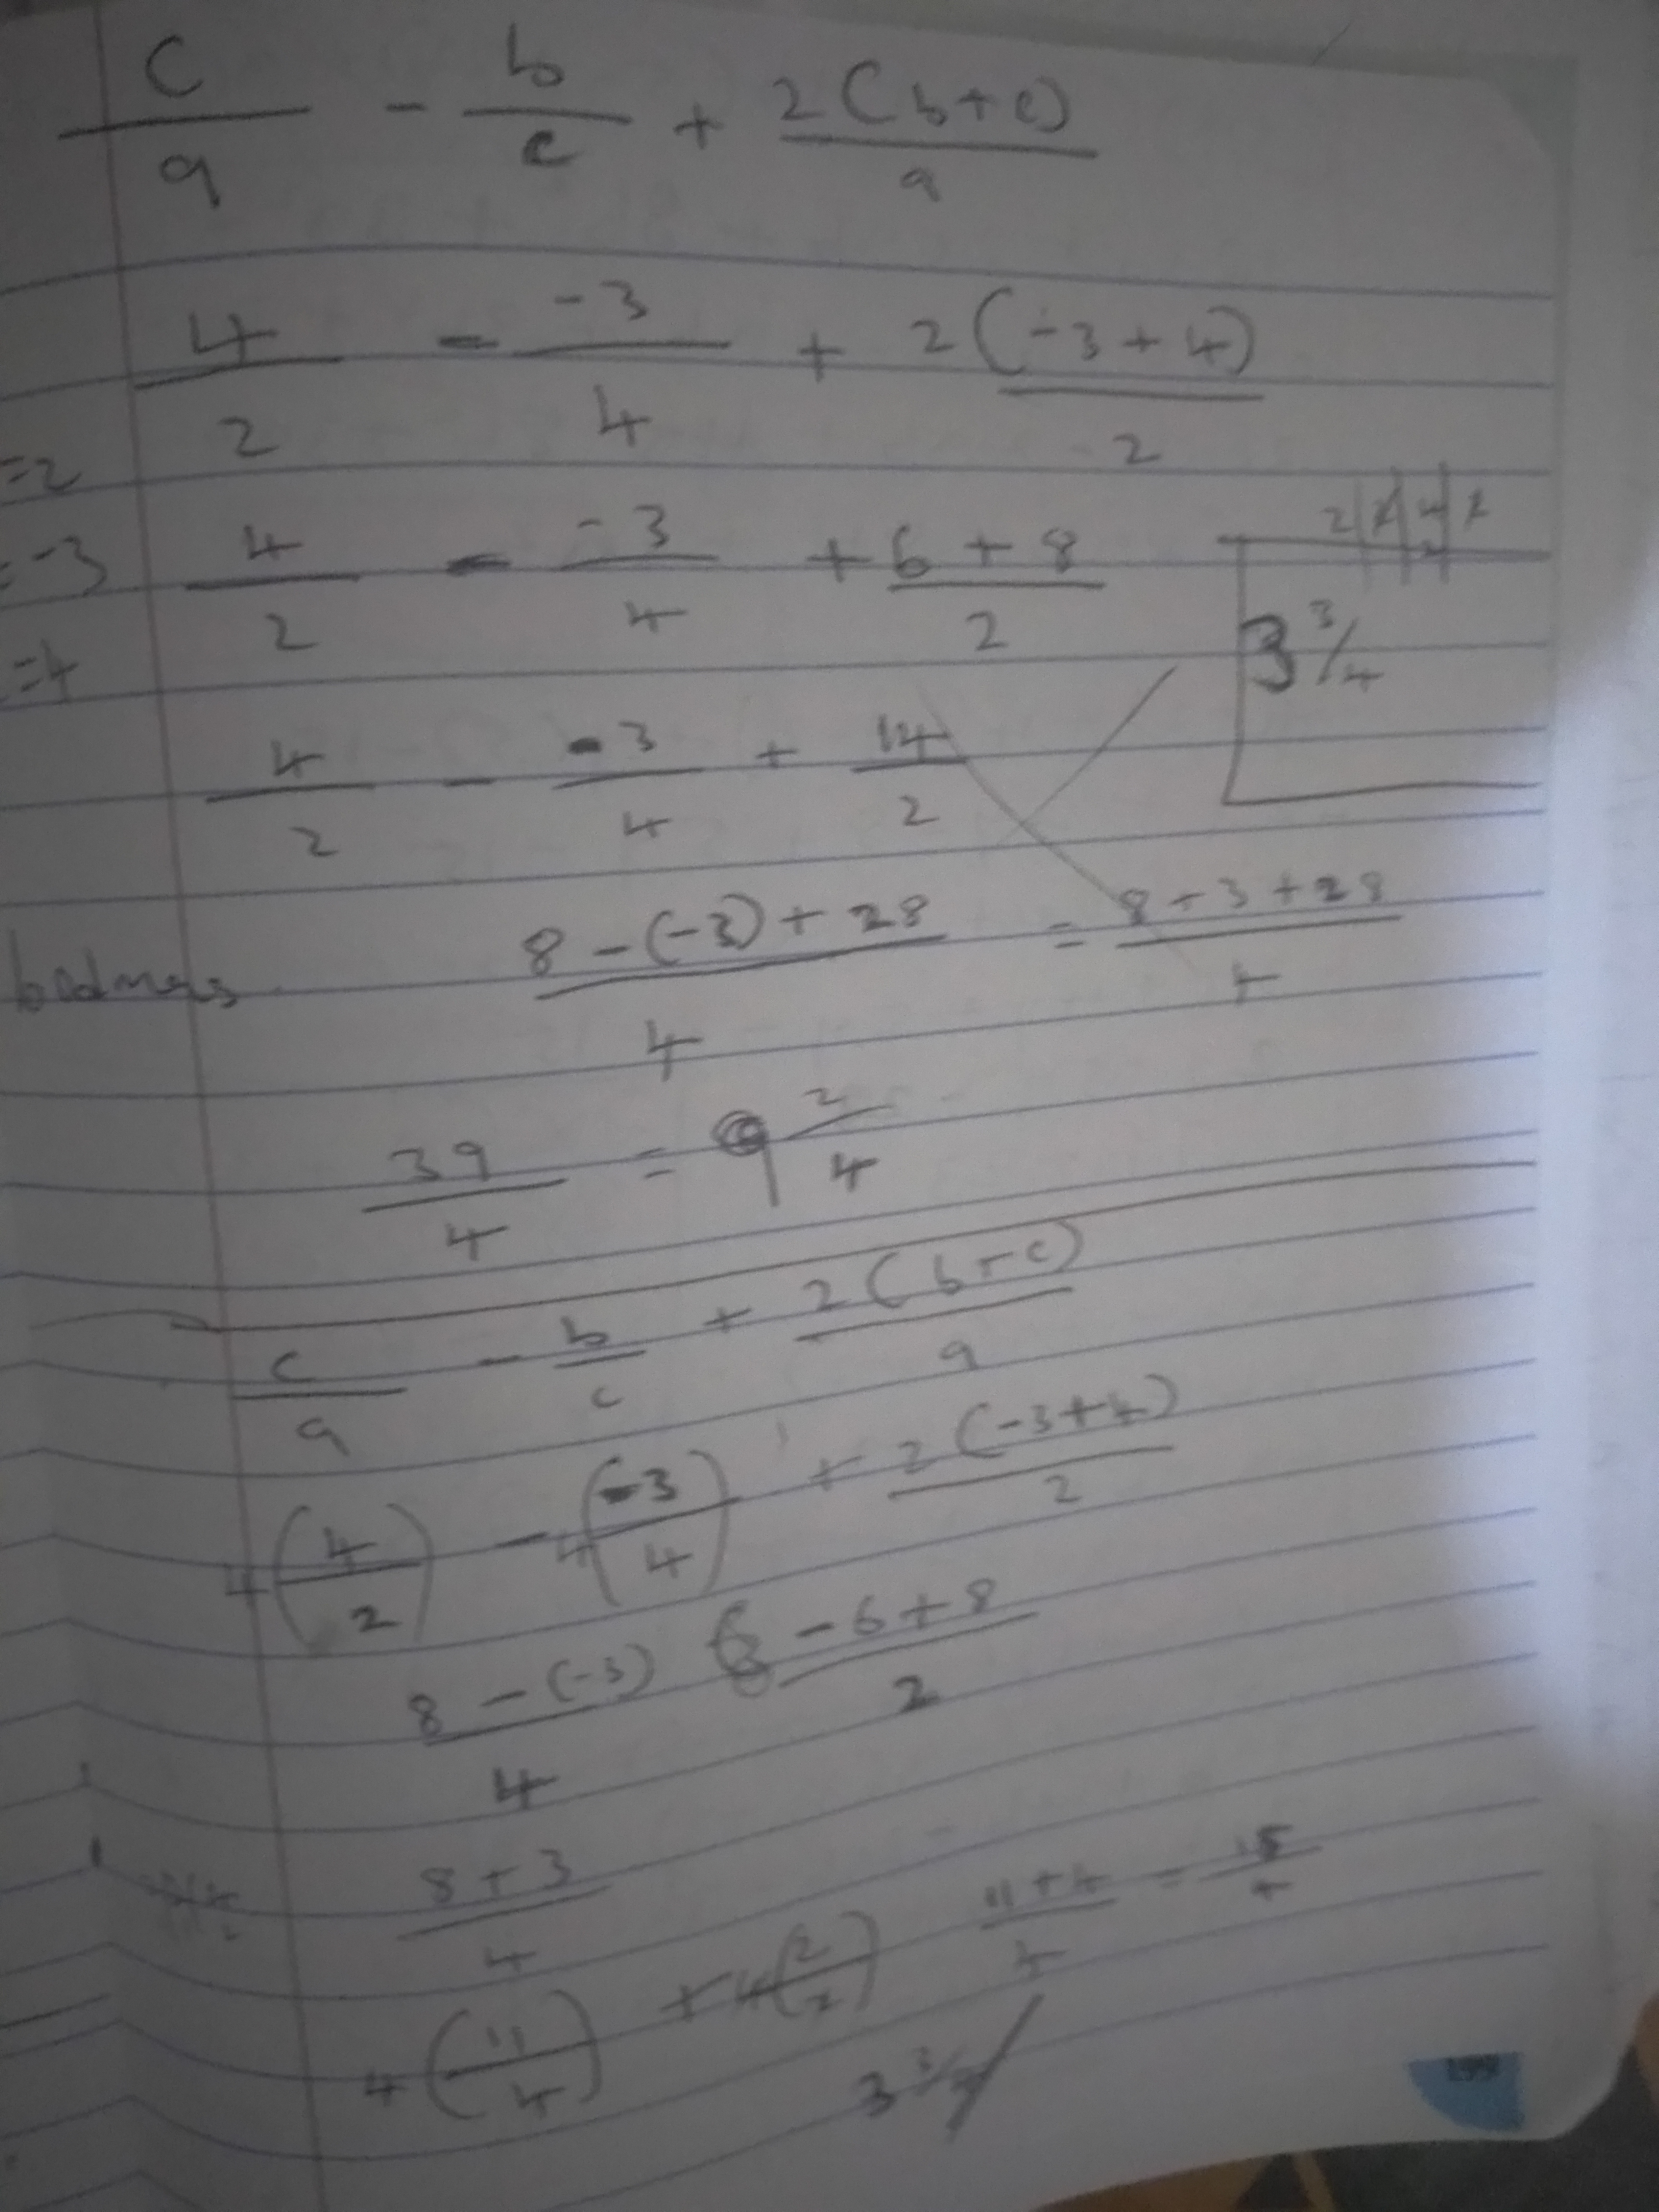 c/a - b/c + 2(b+c)/a
4/2 - -3/4 + 2(-3+4)/2
=2
4/2 - -3/4 + 6+8/2
= -3
3 3/4
=4
4/2 - -3/4 + 14/2
8-(-3)+28/4 = 8+3+28/4
39/4 = 9 2/4
c/a - b/c + 2(b+c)/a
4(4/2) - 4(-3/4) + 2(-3+4)/2
8-(-3)/4 -6+8/2
8+3/4
4(11/4) + 4(2/2) 11+4/4 = 15/4
3 3/4
199